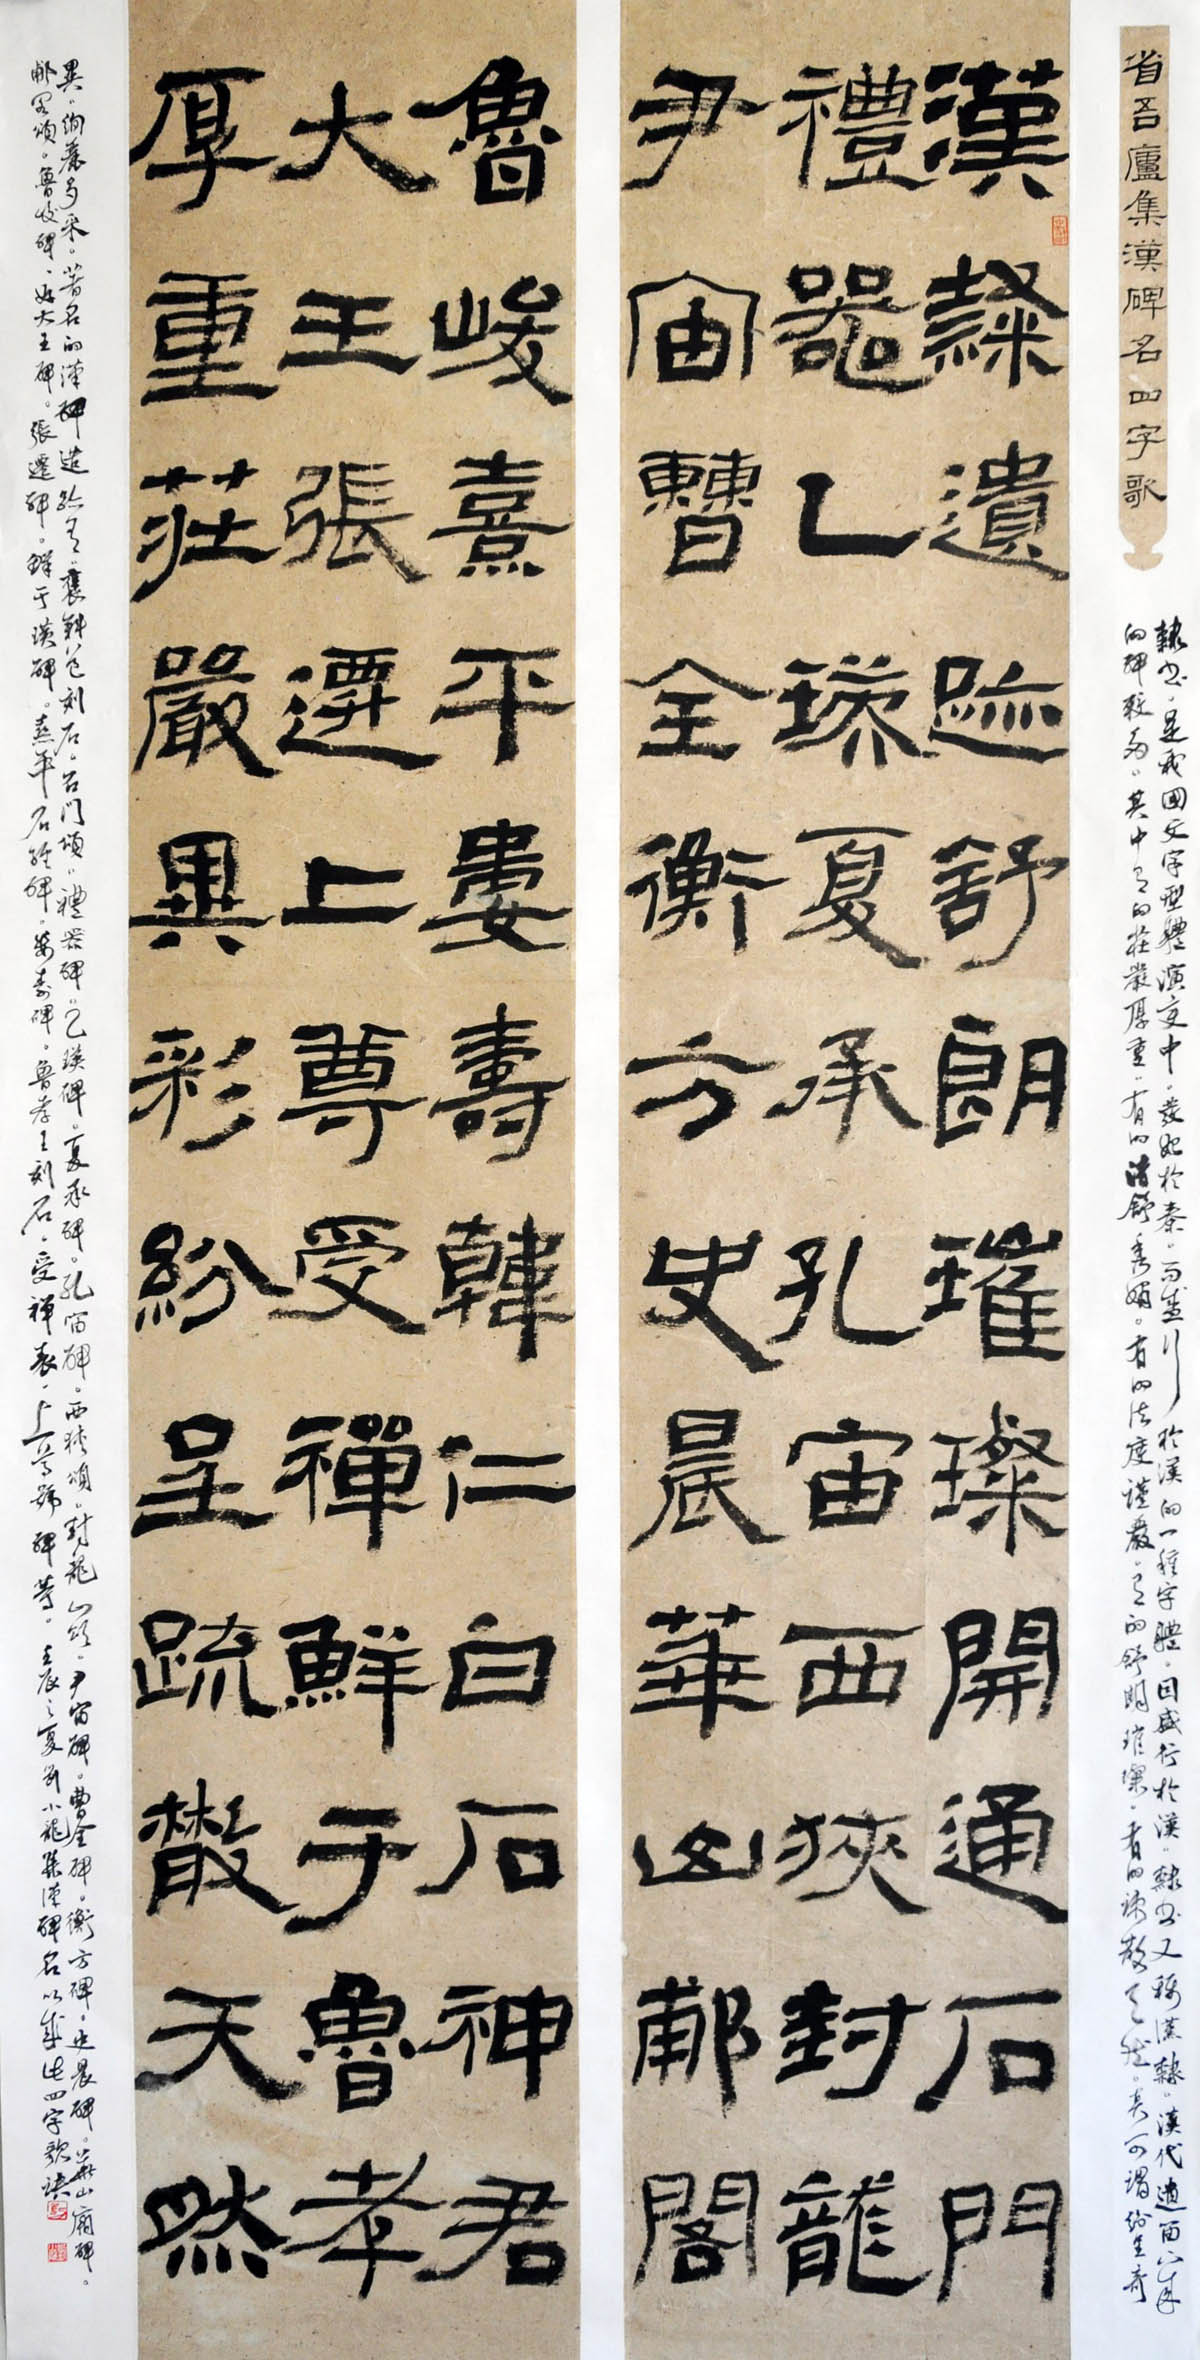 省吾廬集漢碑名四字歌
隸書是我國文字型體演變中發起於秦而盛行於漢的一種字體因盛行於漢隸書又稱漢隸漢代遺留下來
的碑較多其中有的莊嚴厚重有的清舒秀麗有的法度謹嚴有的舒朗璀璨有的疏散天然真可謂紛呈奇
漢隸遺跡舒朗璀璨開通石門
禮器乙瑛夏承孔宙西狹封龍
尹宙曹全衡方史晨華山郙閣
魯峻熹平婁壽韓仁白石神君
大王張遷上尊受禪鮮于魯孝
厚重莊嚴異彩紛呈疏散天然
異絢麗多采著名的漢碑造跡有褒斜道刻石石門頌禮器碑乙瑛碑夏承碑孔宙碑西狹頌封龍山頌尹宙碑曹全碑衡方碑史晨碑華山廟碑
郙閣頌魯峻碑好大王碑張遷碑鮮于璜碑熹平石經碑婁壽碑魯孝王刻石受禪表上尊號碑等壬辰之夏 小龍集漢碑名以成此四字歌